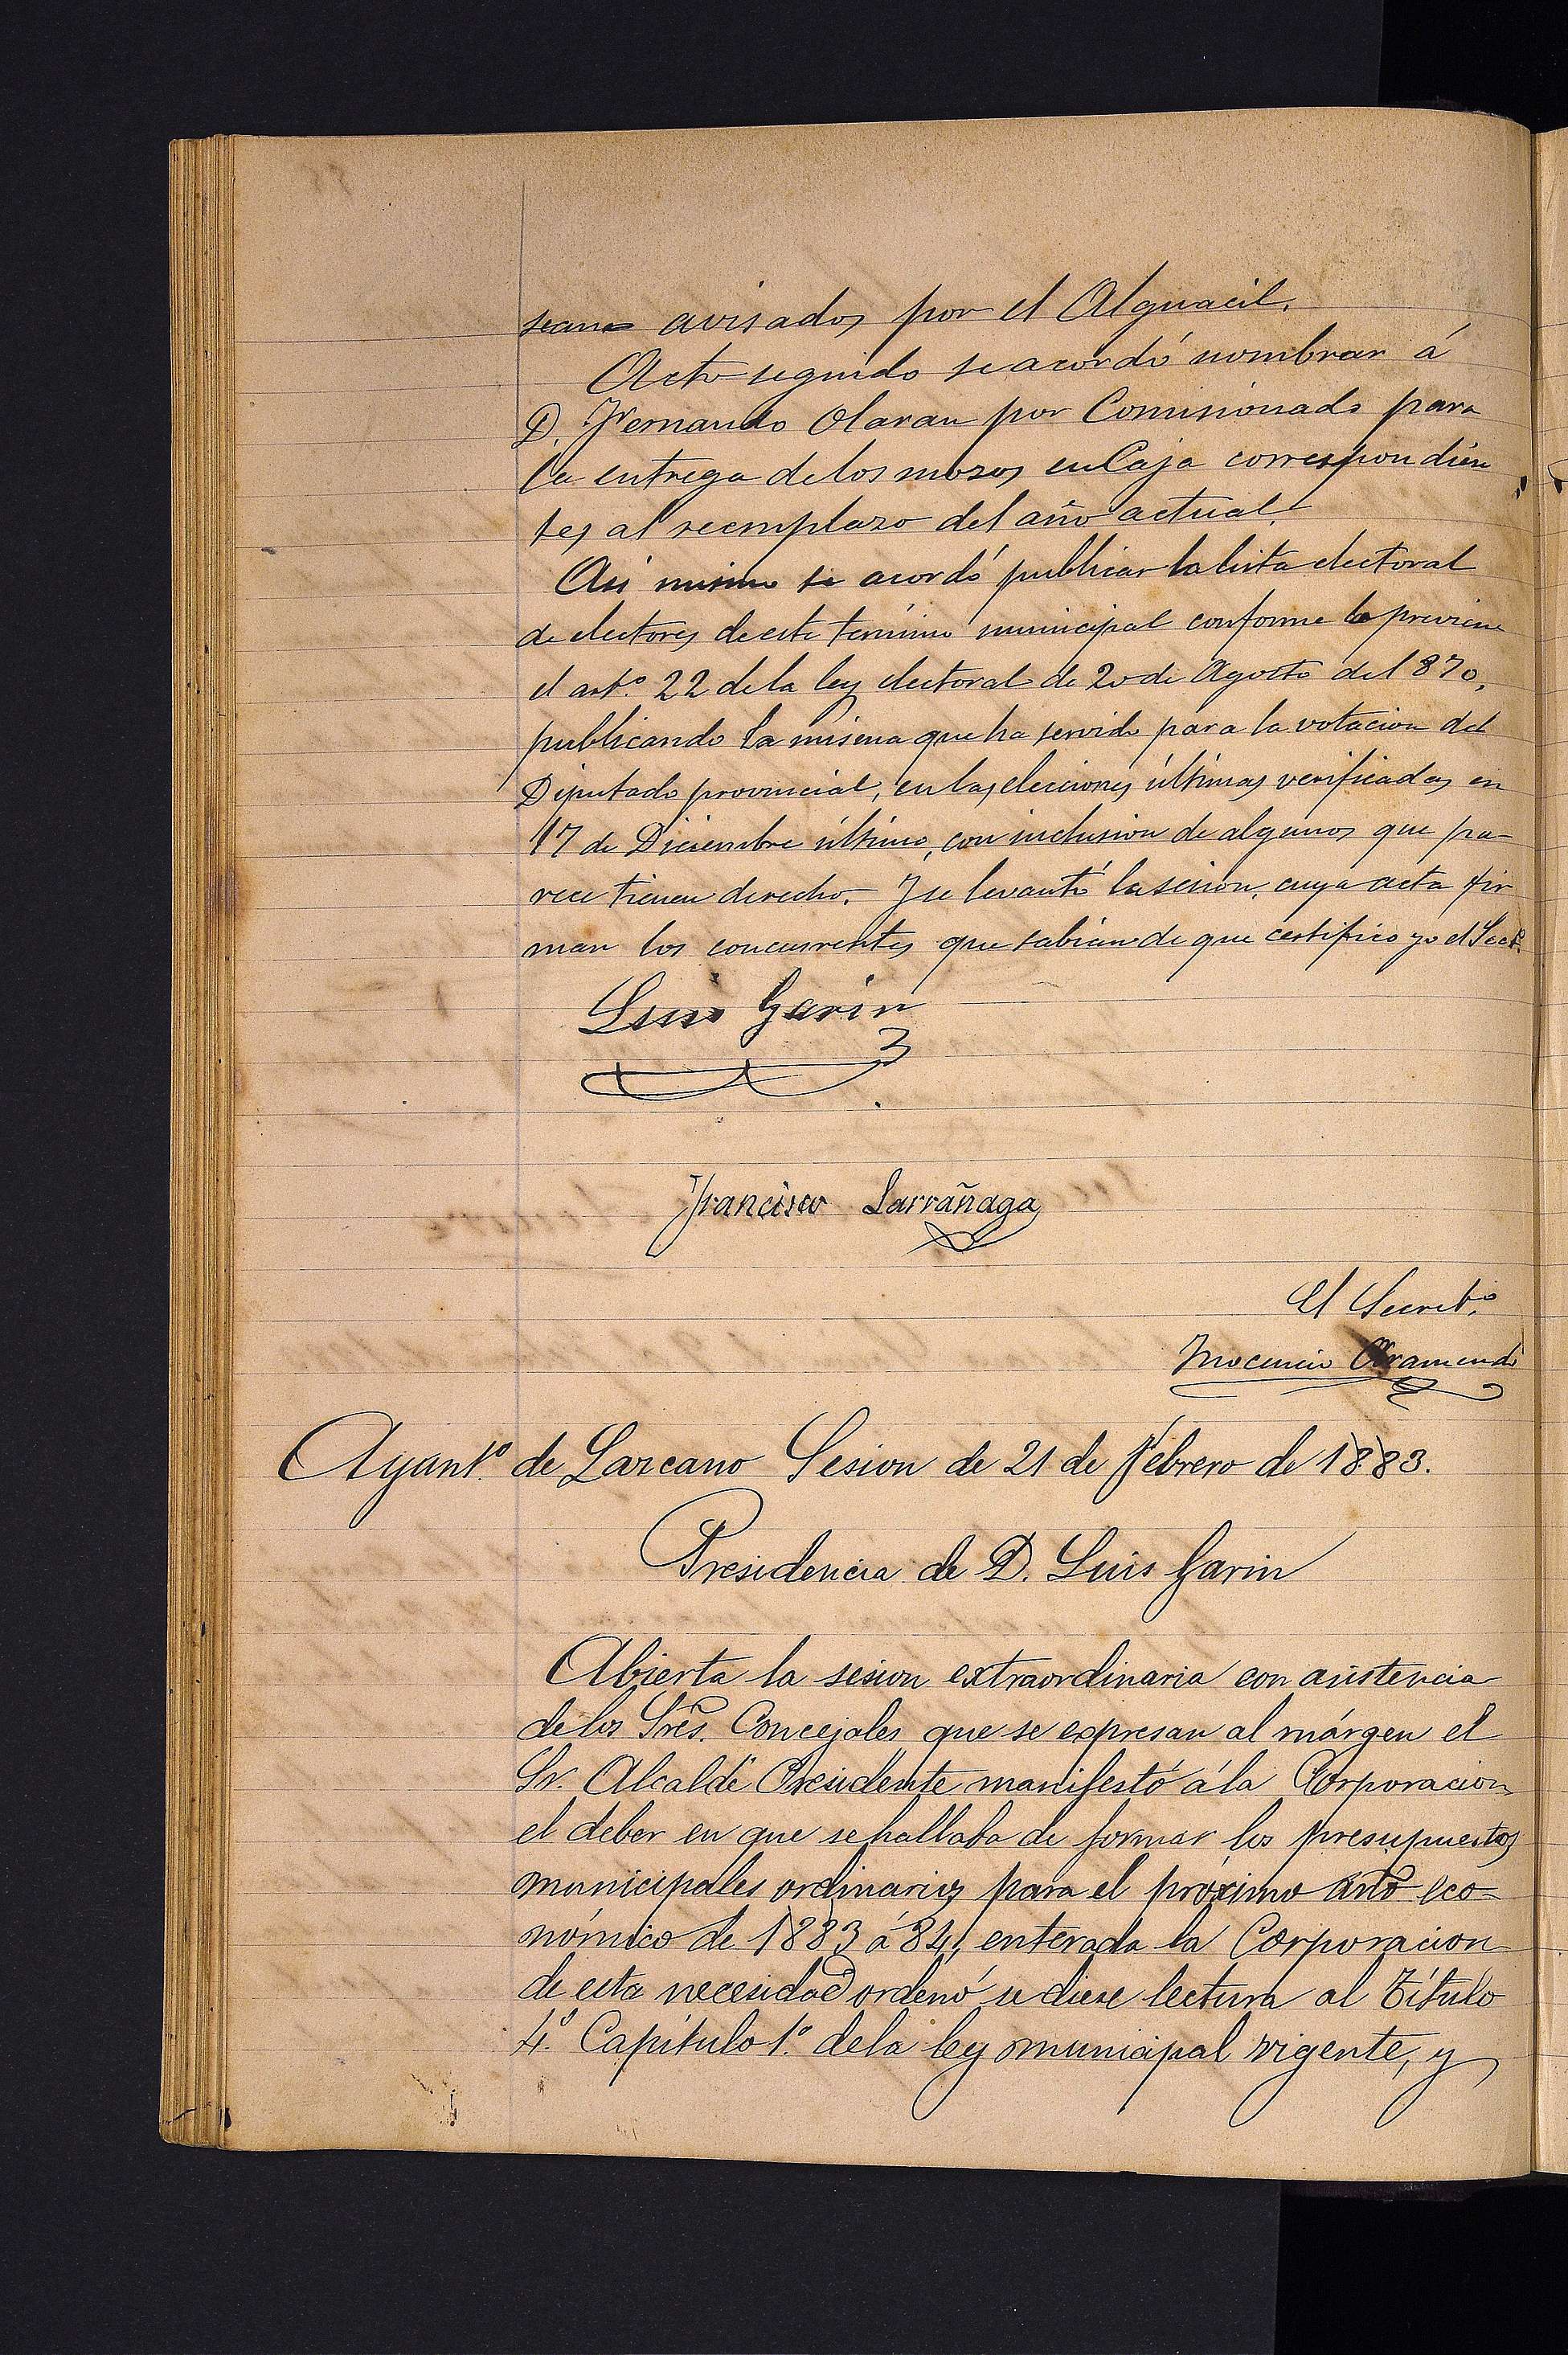 sean avisados por el Alguacil.
Acto seguido se acordó nombrar á
D. Fernando Olaran por Comisionado para
la entrega de los mozos en Caja correspondien
tes al reemplazo del año actual.
Asi mismo se acordó publicar la lista electoral
de electores de este término municipal conforme lo previene
el art.º 22 de la ley electoral de 20 de Agosto del 870,
publicando la misma que ha servido para la votacion del
Diputado provincial, en las elecciones últimas verificadas en
17 de Diciembre último, con inclusion de algunos que pa-
rece tienen derecho. Y se levantó la sesion, cuya acta fir
man los concurrentes que sabian de que certifico yo el Sect.º
Luis Garin
Francisco Larrañaga
El Secret.º
Inocencio Aramendi
Ayunt.º de Lazcano Sesion de 21 de Febrero de 1883.
Presidencia de D. Luis Garin
Abierta la sesion extraordinaria con asistencia
de los Sres. Concejales que se expresan al márgen el
Sr. Alcalde Presidente manifestó á la Corporacion
el deber en que se hallaba de formar los presupuestos
municipales ordinarios para el próximo año eco-
nómico de 1883 á 84, enterada la Corporacion
de esta necesidad ordenó se diese lectura al Título
4.º Capítulo 1.º de la ley municipal vigente, y